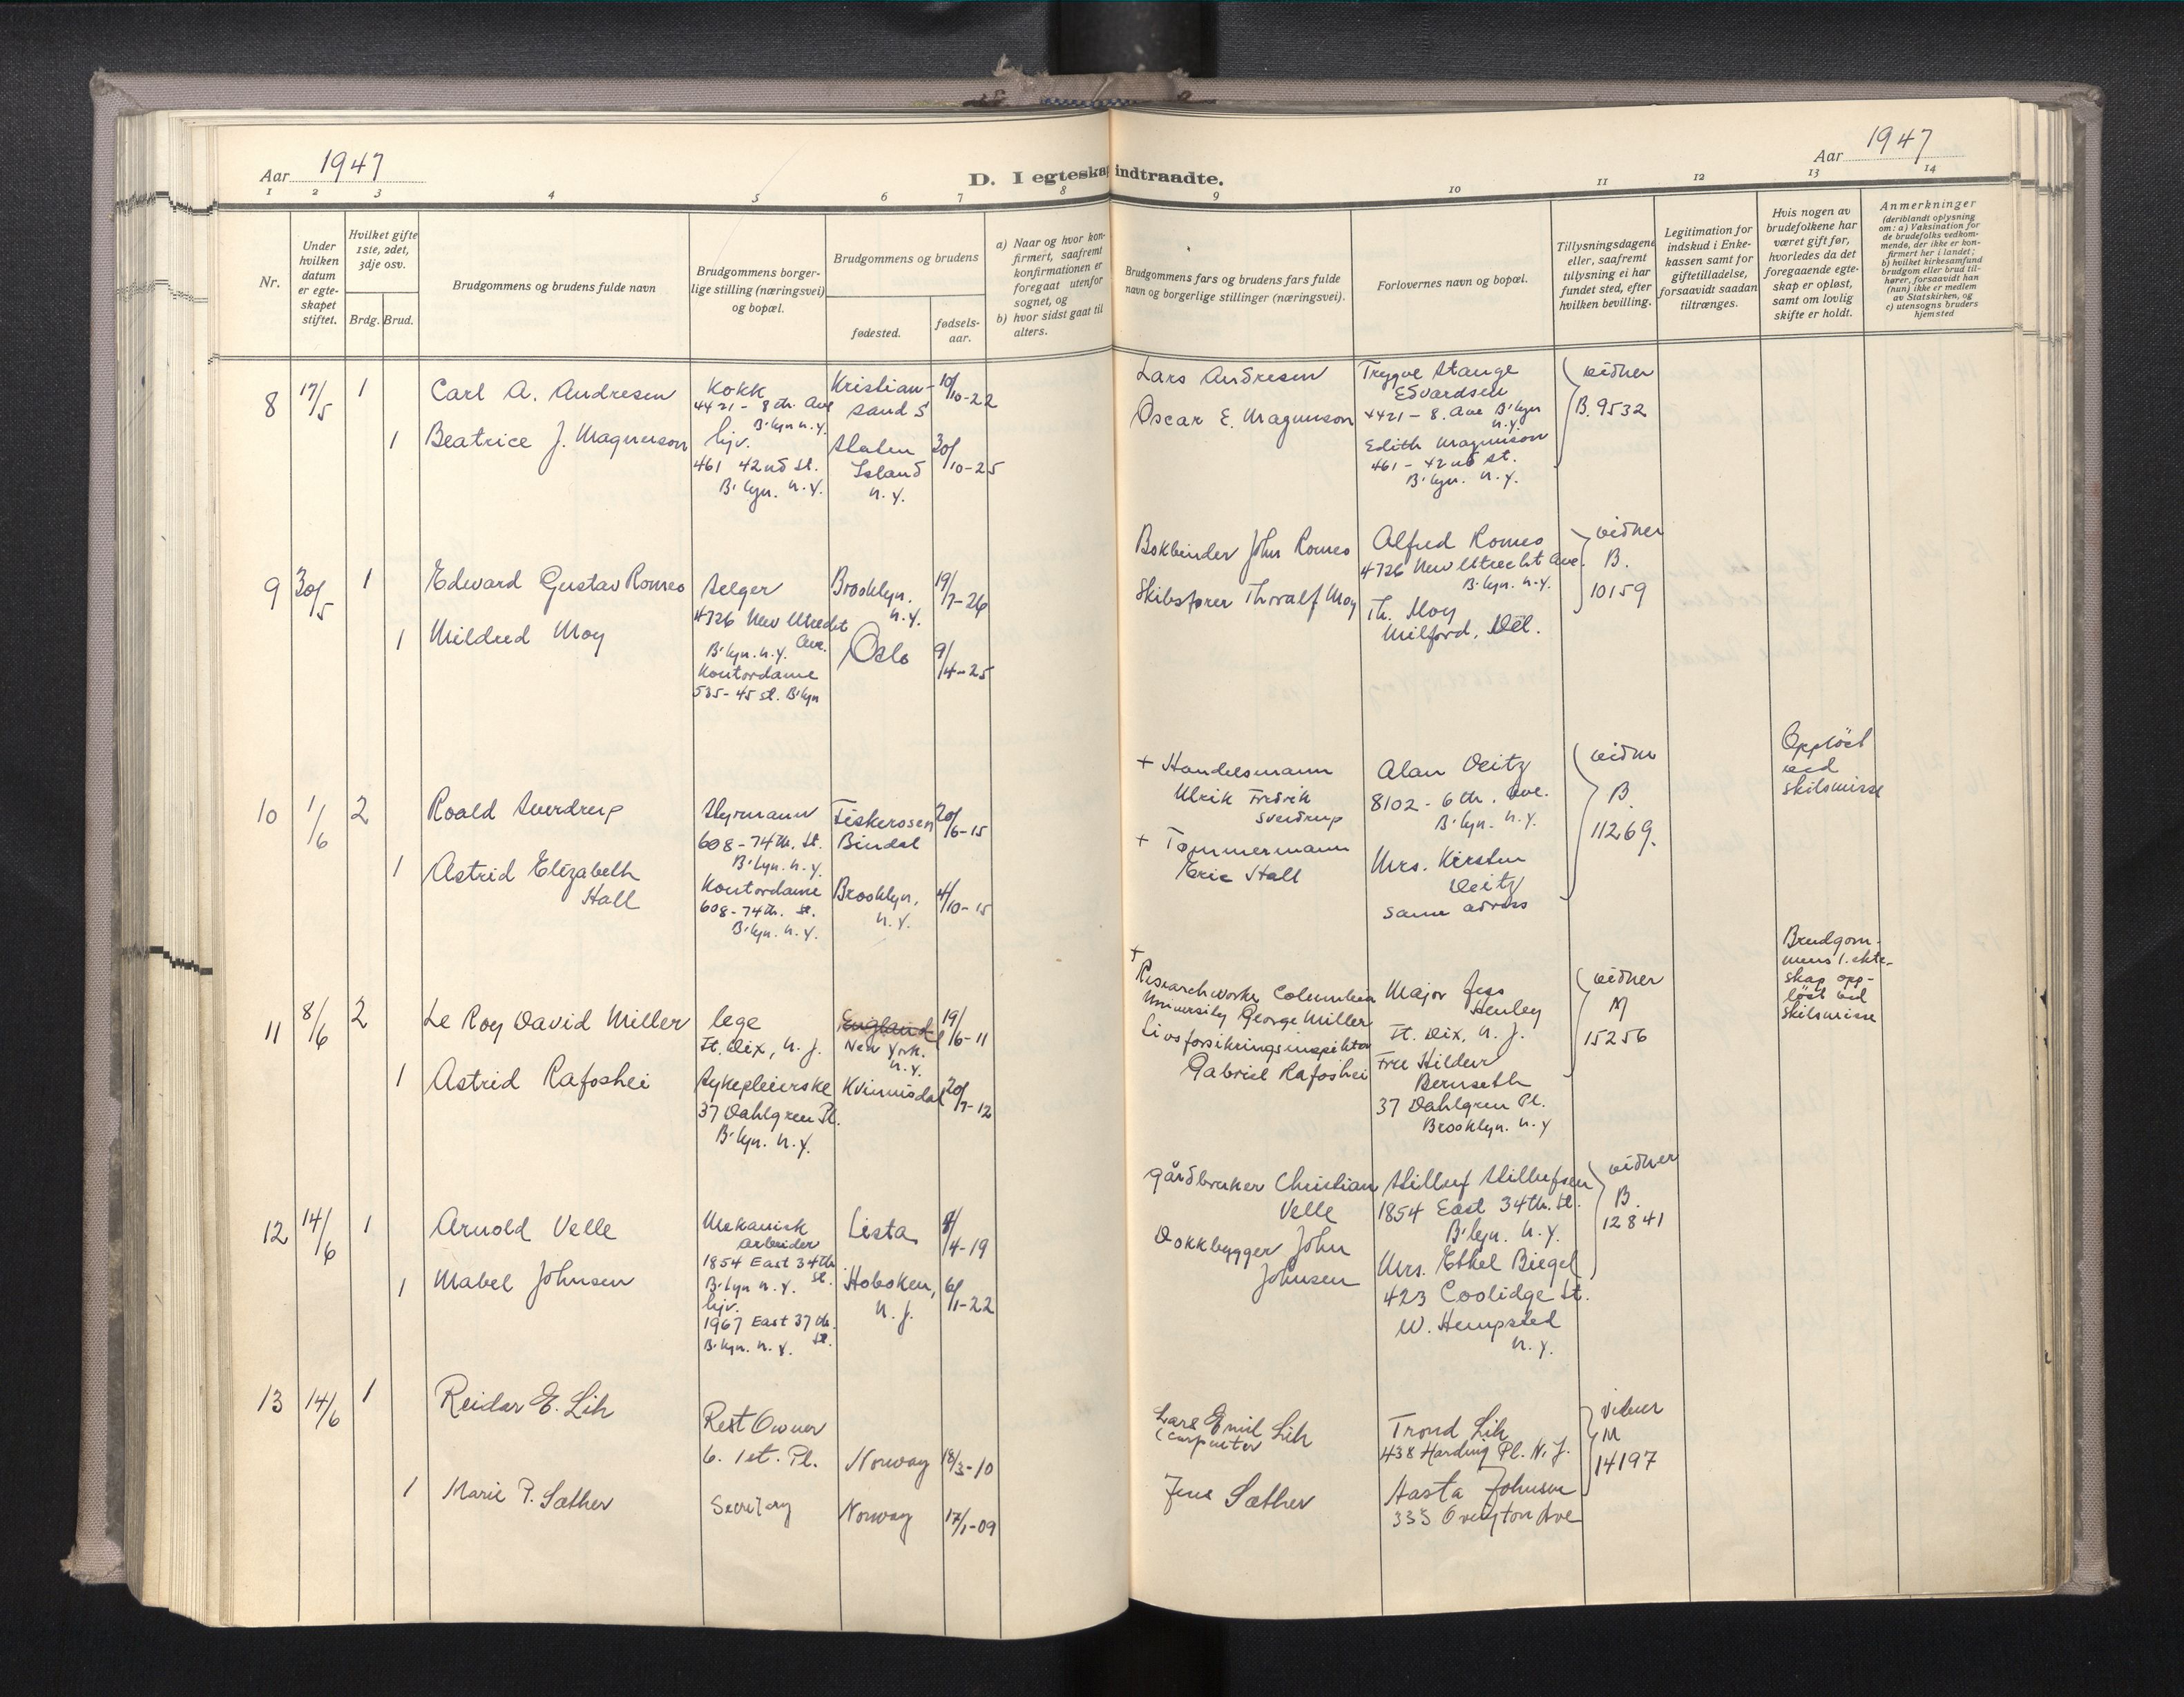 Aar 1947
D. I egteskap indtraadte.
Aar 1947
1 2 3 4 5 6 7 8 9 10 11 12 13 14
Nr.
Under
hvilken
datum
er egte-
skapet
stiftet.
Hvilket gifte
1ste, 2det,
3dje osv.
Brdg. Brud.
Brudgommens og brudens fulde navn
Brudgommens borger-
lige stilling (næringsvei)
og bopæl.
Brudgommens og brudens
fødested.
fødsels-
aar.
a) Naar og hvor kon-
firmert, saafremt
konfirmationen er
foregaat utenfor
sognet, og
b) hvor sidst gaat til
alters.
Brudgommens fars og brudens fars fulde
navn og borgerlige stillinger (næringsvei).
Forlovernes navn og bopæl.
Tillysningsdagene
eller, saafremt
tillysning ei har
fundet sted, efter
hvilken bevilling.
Legitimation for
indskud i Enke-
kassen samt for
giftetilladelse,
forsaavidt saadan
tiltrænges.
Hvis nogen av
brudefolkene har
været gift før,
hvorledes da det
foregaaende egte-
skap er opløst,
samt om lovlig
skifte er holdt.
Anmerkninger
(deriblandt oplysning
om: a) Vaksination for
de brudefolks vedkom-
mende, der ikke er kon-
firmert her i landet;
b) hvilket kirkesamfund
brudgom eller brud til-
hører, forsaavidt han
(hun) ikke er medlem
av Statskirken, og
c) utensogns bruders
hjemsted
8 17/5 1
Carl A. Andresen
Kokk
4421 - 8th. Ave
B'lyn n.y.
Kristian-
sand S
10/10-22
1 Beatrice J. Magnuson
hjv.
461 42nd St.
B'lyn. n.y.
Staten
Island
n.y.
30/10-25
Lars Andresen
Oscar E. Magnuson
Trygve Stange
Edvardsen
4421 - 8. Ave B'lyn
n.y.
Edith Magnuson
461 - 42nd St.
B'lyn. n.y.
vidner
B. 9532
9 30/5 1
Edward Gustav Romeo
Selger
4726 New Utrecht
Ave.
B'lyn. n.y.
Brooklyn.
n.y.
19/7-26
1 Mildred Moy
Kontordame
535-45 St. B'lyn
Oslo
9/4-25
Bokbinder John Romeo
Skibsfører Thoralf Moy
Alfred Romeo
4726 New Utrecht Ave.
B'lyn. n.y.
Th. Moy
Milford, Del.
vidner
B.
10159
10 1/6 2
Roald Sverdrup
Styrmann
608-74th. St.
B'lyn. n.y.
Fiskerosen
Bindal
20/6-15
1 Astrid Elizabeth
Hall
Kontordame
608-74th. St.
B'lyn. n.y.
Brooklyn,
n.y.
4/10-15
+ Handelsmann
Ulrik Fredrik
Sverdrup
+ Tømmermann
Eric Hall
Alan Deitz
8102 - 6th. Ave.
B'lyn. n.y.
Mrs. Kirsten
Deitz
same adress
vidner
B.
11269.
Oppløst
ved
skilsmisse
11 8/6 2
Le Roy David Miller
lege
Ft. Dix, n.j.
England
New York.
n.y.
19/6-11
1 Astrid Rafoshei
Sykepleierske
37 Dahlgren Pl.
B'lyn. n.y.
Kvinnisdal
20/7-12
+
Research worker Columbia
University George Miller
Livsforsikringsinspektør
Gabriel Rafoshei
Major Jess
Henley
Ft. Dix, n.j.
Fru Hildur
Bernseth
37 Dahlgren Pl.
Brooklyn. n.y
vidner
M
15256
Brudgom-
mens 1. ekte-
skap opp-
løst ved
skilsmisse
12 14/6 1
Arnold Velle
Mekanisk
Arbeider
1854 East 34th
St.
B'lyn n.y.
Lista
8/4-19
1 Mabel Johnsen
hjv.
1967 East 37th.
St.
B'lyn. n.y.
Hoboken,
n.j.
6/1-22
Gårdbruker Christian
Velle
Dokkbygger John
Johnsen
Stilluf Stillufsen
1854 East 34th. St.
B'lyn. n.y.
Mrs. Ethel Biegel
423 Coolidge St.
W. Hempsted
n.y.
vidner
B.
12841
13 14/6 1
Reidar E. Lih
Rest Owner
6. 1st. Pl.
Norway
18/3-10
1 Marie P. Sather
Secretary
Norway
17/1-09
Lars Emil Lih
(carpenter
Jens Sather
Trond Lih
438 Harding Pl. N.J.
Aasta Johnsen
335 Ovington Ave
vidner
M
14197